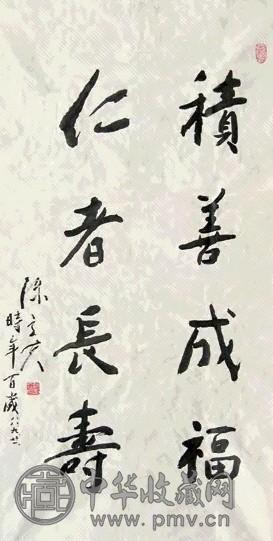 積善成福
仁者長壽
陳立夫
時年百歲
中华收藏网
www.pmv.cn